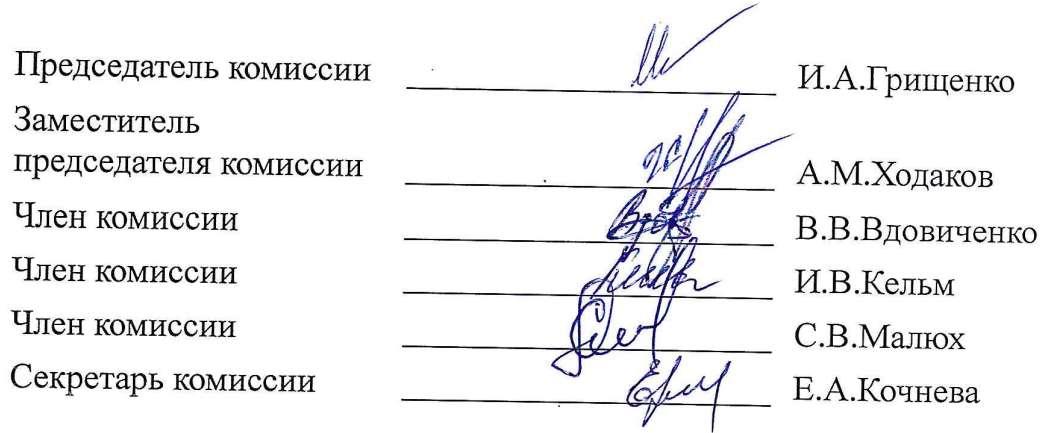 Председатель комиссии И.А.Грищенко
Заместитель
председателя комиссии А.М.Ходаков
Член комиссии В.В.Вдовиченко
Член комиссии И.В.Кельм
Член комиссии С.В.Малюх
Секретарь комиссии Е.А.Кочнева